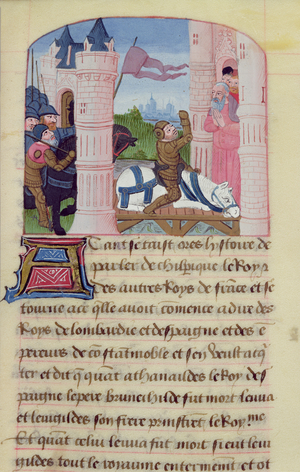 A tant se taist ores lystoire de
parler de chilperique le Roy
des autres Roys de france et se
tourne a ce qlle avoit comence a dire des
Roys de lombardie et despaigne et des e
pereurs de costatinoble et sen veult acq̄
ter et dit q̄ quāt athanaildes le Roy des
paigne le pere brunechilde fut mort leuua
et leuigildes son frere prinstrēt le Roy.me
Et quāt celui leuua fut mort si eut leui
gildes tout le royaume entieremēt et ot